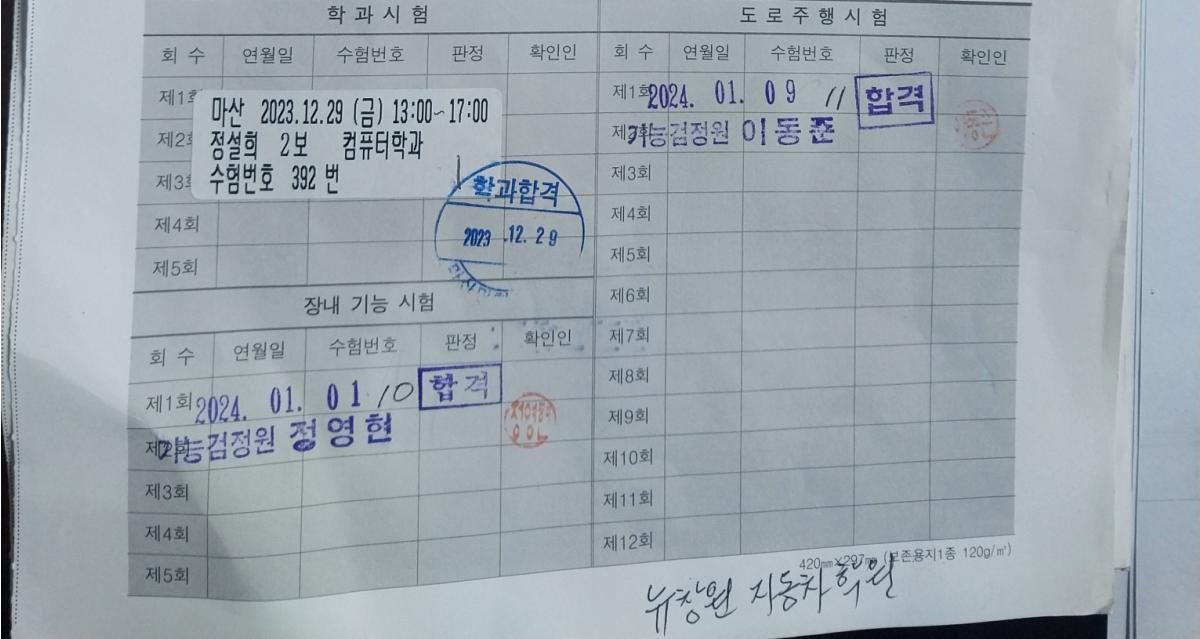 학과시험
회 수 연월일 수험번호 판정 확인인
제1회
마산 2023.12.29 (금) 13:00~17:00
제2회
정설희 2보 컴퓨터학과
제3회
수험번호 392 번
학과합격
2023 .12. 29
제4회
제5회
장내 기능 시험
회 수 연월일 수험번호 판정 확인인
제1회 2024. 01. 01 10 합격
제2회 기능검정원 정영현
제3회
제4회
제5회
도로주행시험
회 수 연월일 수험번호 판정 확인인
제1회 2024. 01. 09 11 합격
제2회 기능검정원 이동준
제3회
제4회
제5회
제6회
제7회
제8회
제9회
제10회
제11회
제12회
420㎜×297㎜ (보존용지1종 120g/㎡)
뉴창원 자동차학원